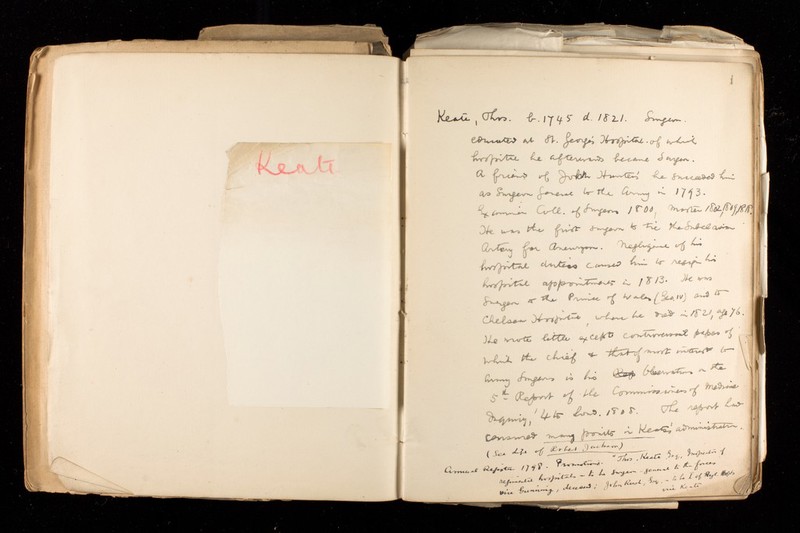 Keate
1
Keate, Thos. b. 1745 d. 1821. Surgeon.
educated at St. George's Hospital, of which
hospital he afterwards became Surgeon.
A friend of John Hunter's he succeeded him
as Surgeon General to the Army in 1793.
Examiner Coll. of Surgeons 1800, Master 1802, 1809, 1818.
He was the first surgeon to tie the Subclavian
Artery for Aneurysm. Negligence of his
hospital duties caused him to resign his
hospital appointment in 1813. He was
Surgeon to the Prince of Wales (Geo IV) and to
Chelsea Hospital, where he died in 1821, age 76.
He wrote little except controversial papers of
which the chief & that of most interest to
Army Surgeons is his Observations on the
5th Report of the Commissioners of Medical
Enquiry, 4to Lond. 1808. The report had
censured many points in Keate's administration.
(See Life of Robert Jackson)
Annual Register 1798. Promotions. "Thos. Keate Esq., Inspector of
regimental hospitals - to be Surgeon-general to the forces
vice Gunning, deceased; John Rush, Esq. - to be I. of Regt. Hosp.
vice Keate